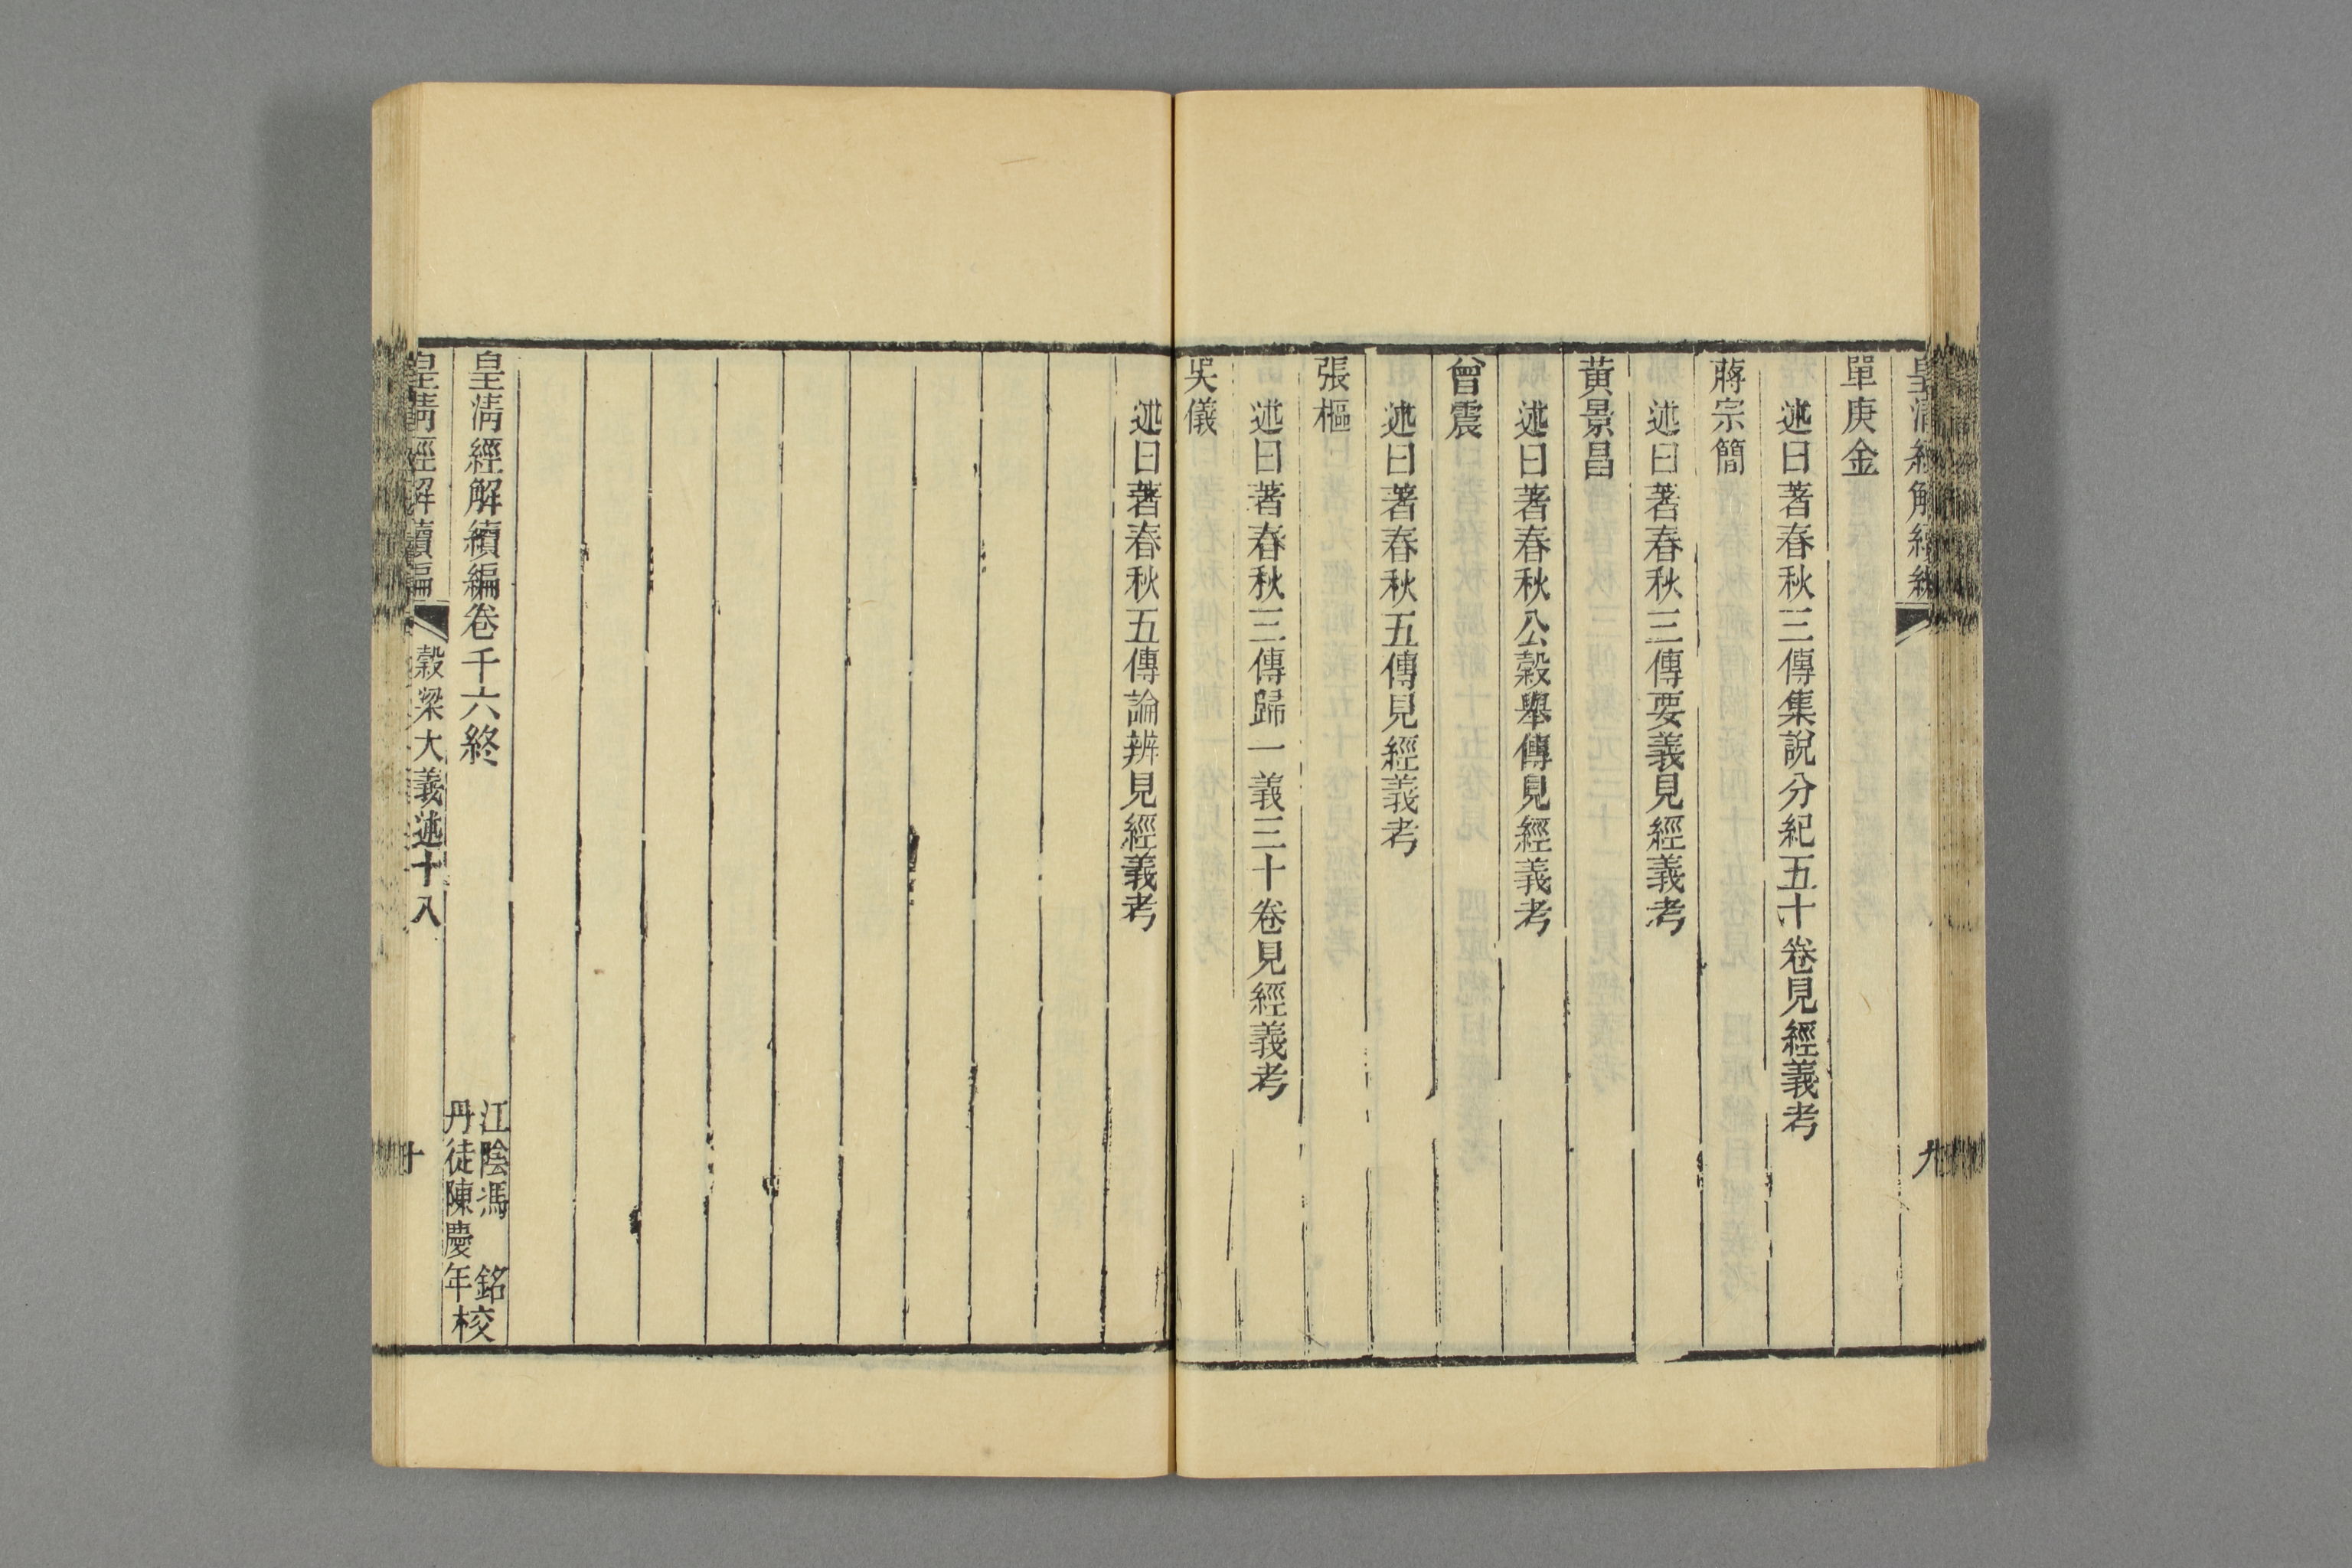 單庚金
述曰著春秋三傳集說分紀五十卷見經義考
蔣宗簡
述曰著春秋三傳要義見經義考
黃景昌
述曰著春秋公穀舉傳見經義考
曾震
述曰著春秋五傳見經義考
張樞
述曰著春秋三傳歸一義三十卷見經義考
吳儀
述曰著春秋五傳論辨見經義考
皇淸經解續編卷千六終
江陰馮銘
丹徒陳慶年校
皇淸經解續編
穀梁大義述十八
十